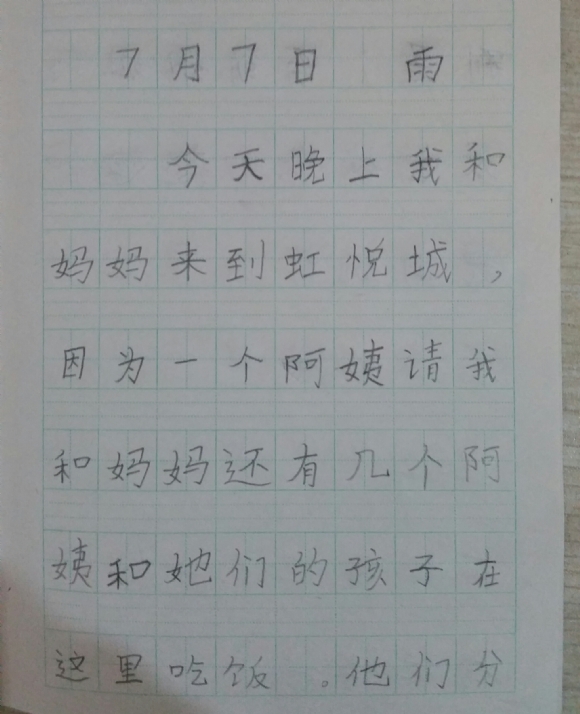 7月7日 雨
今天晚上我和
妈妈来到虹悦城，
因为一个阿姨请我
和妈妈还有几个阿
姨和她们的孩子在
这里吃饭。他们分